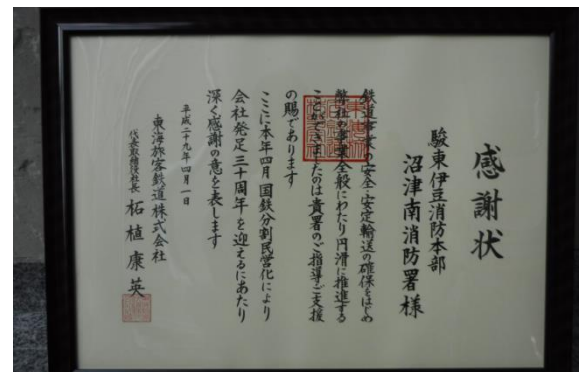 感謝状
駿東伊豆消防本部
沼津南消防署様
鉄道事業の安全・安定輸送の確保をはじめ
弊社の事業全般にわたり円滑に推進する
ことができましたのは貴署のご指導ご支援
の賜であります
ここに本年四月国鉄分割民営化により
会社発足三十周年を迎えるにあたり
深く感謝の意を表します
平成二十九年四月一日
東海旅客鉄道株式会社
代表取締役社長 柘植康英